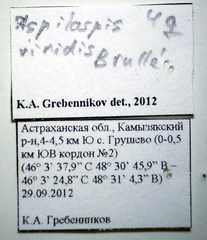 Aspilaspis 4♀
viridis Brullé.
K.A. Grebennikov det., 2012
Астраханская обл., Камызякский
р-н,4-4,5 км Ю с. Грушево (0-0,5
км ЮВ кордон №2)
(46° 3` 37,9” С 48° 30` 45,9” В –
46° 3` 24,8” С 48° 31` 4,3” В)
29.09.2012
К.А. Гребенников